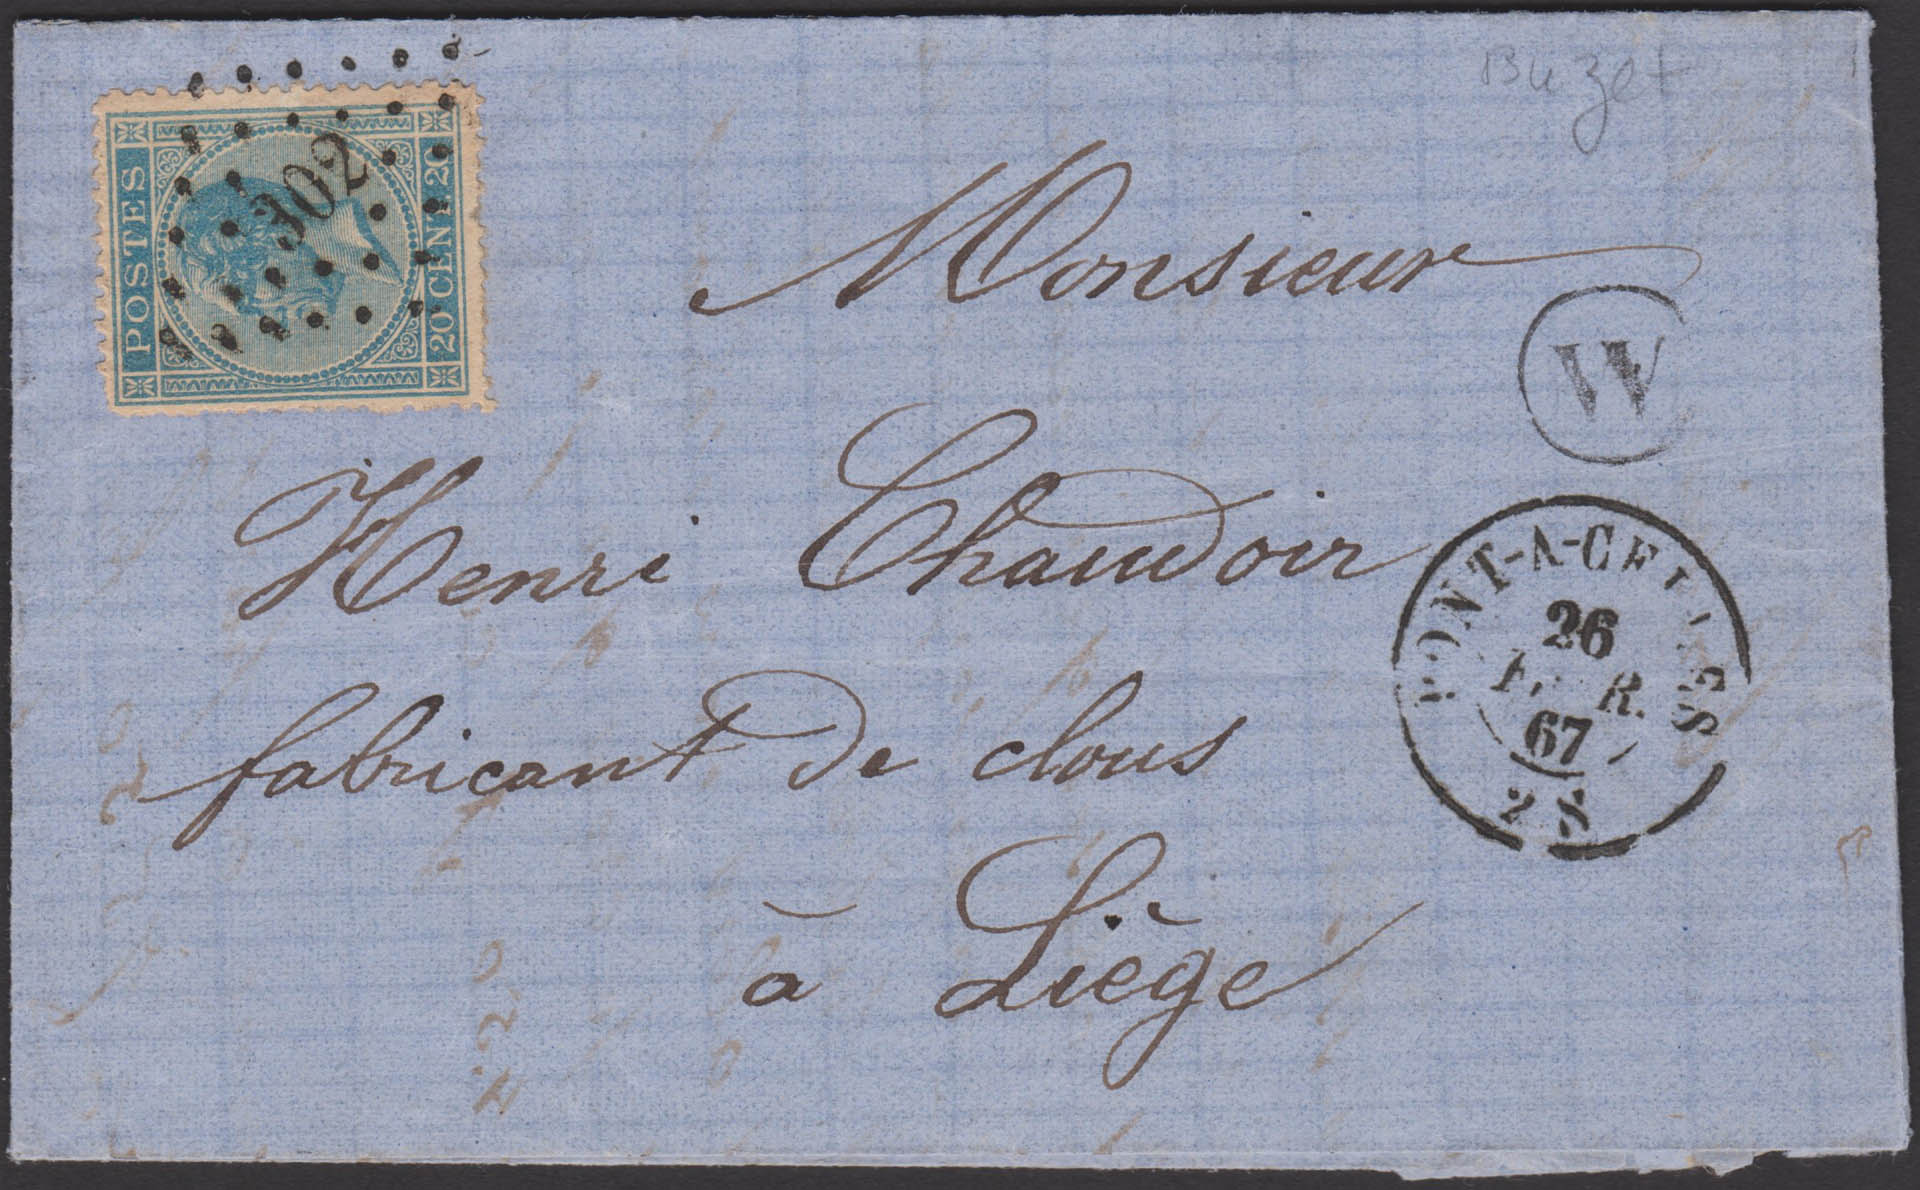 Buzet
POSTES
302
20 CENT 20
Monsieur
W
Henri Chaudoir
PONT-A-CELLES
26
67
2 S
fabricant de clous
à Liège